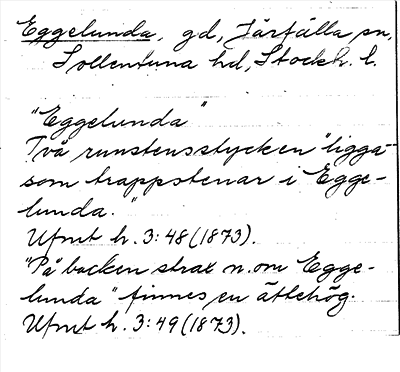 Eggelunda, gd, Järfälla sn,
Sollentuna hd, Stockh. l.
"Eggelunda"
Två runstensstycken "ligga
som trappstenar i Egge-
lunda."
Ufmt h. 3:48 (1873).
"På backen strax n. om Egge-
lunda" finnes en ättehög.
Ufmt h. 3:49 (1873).